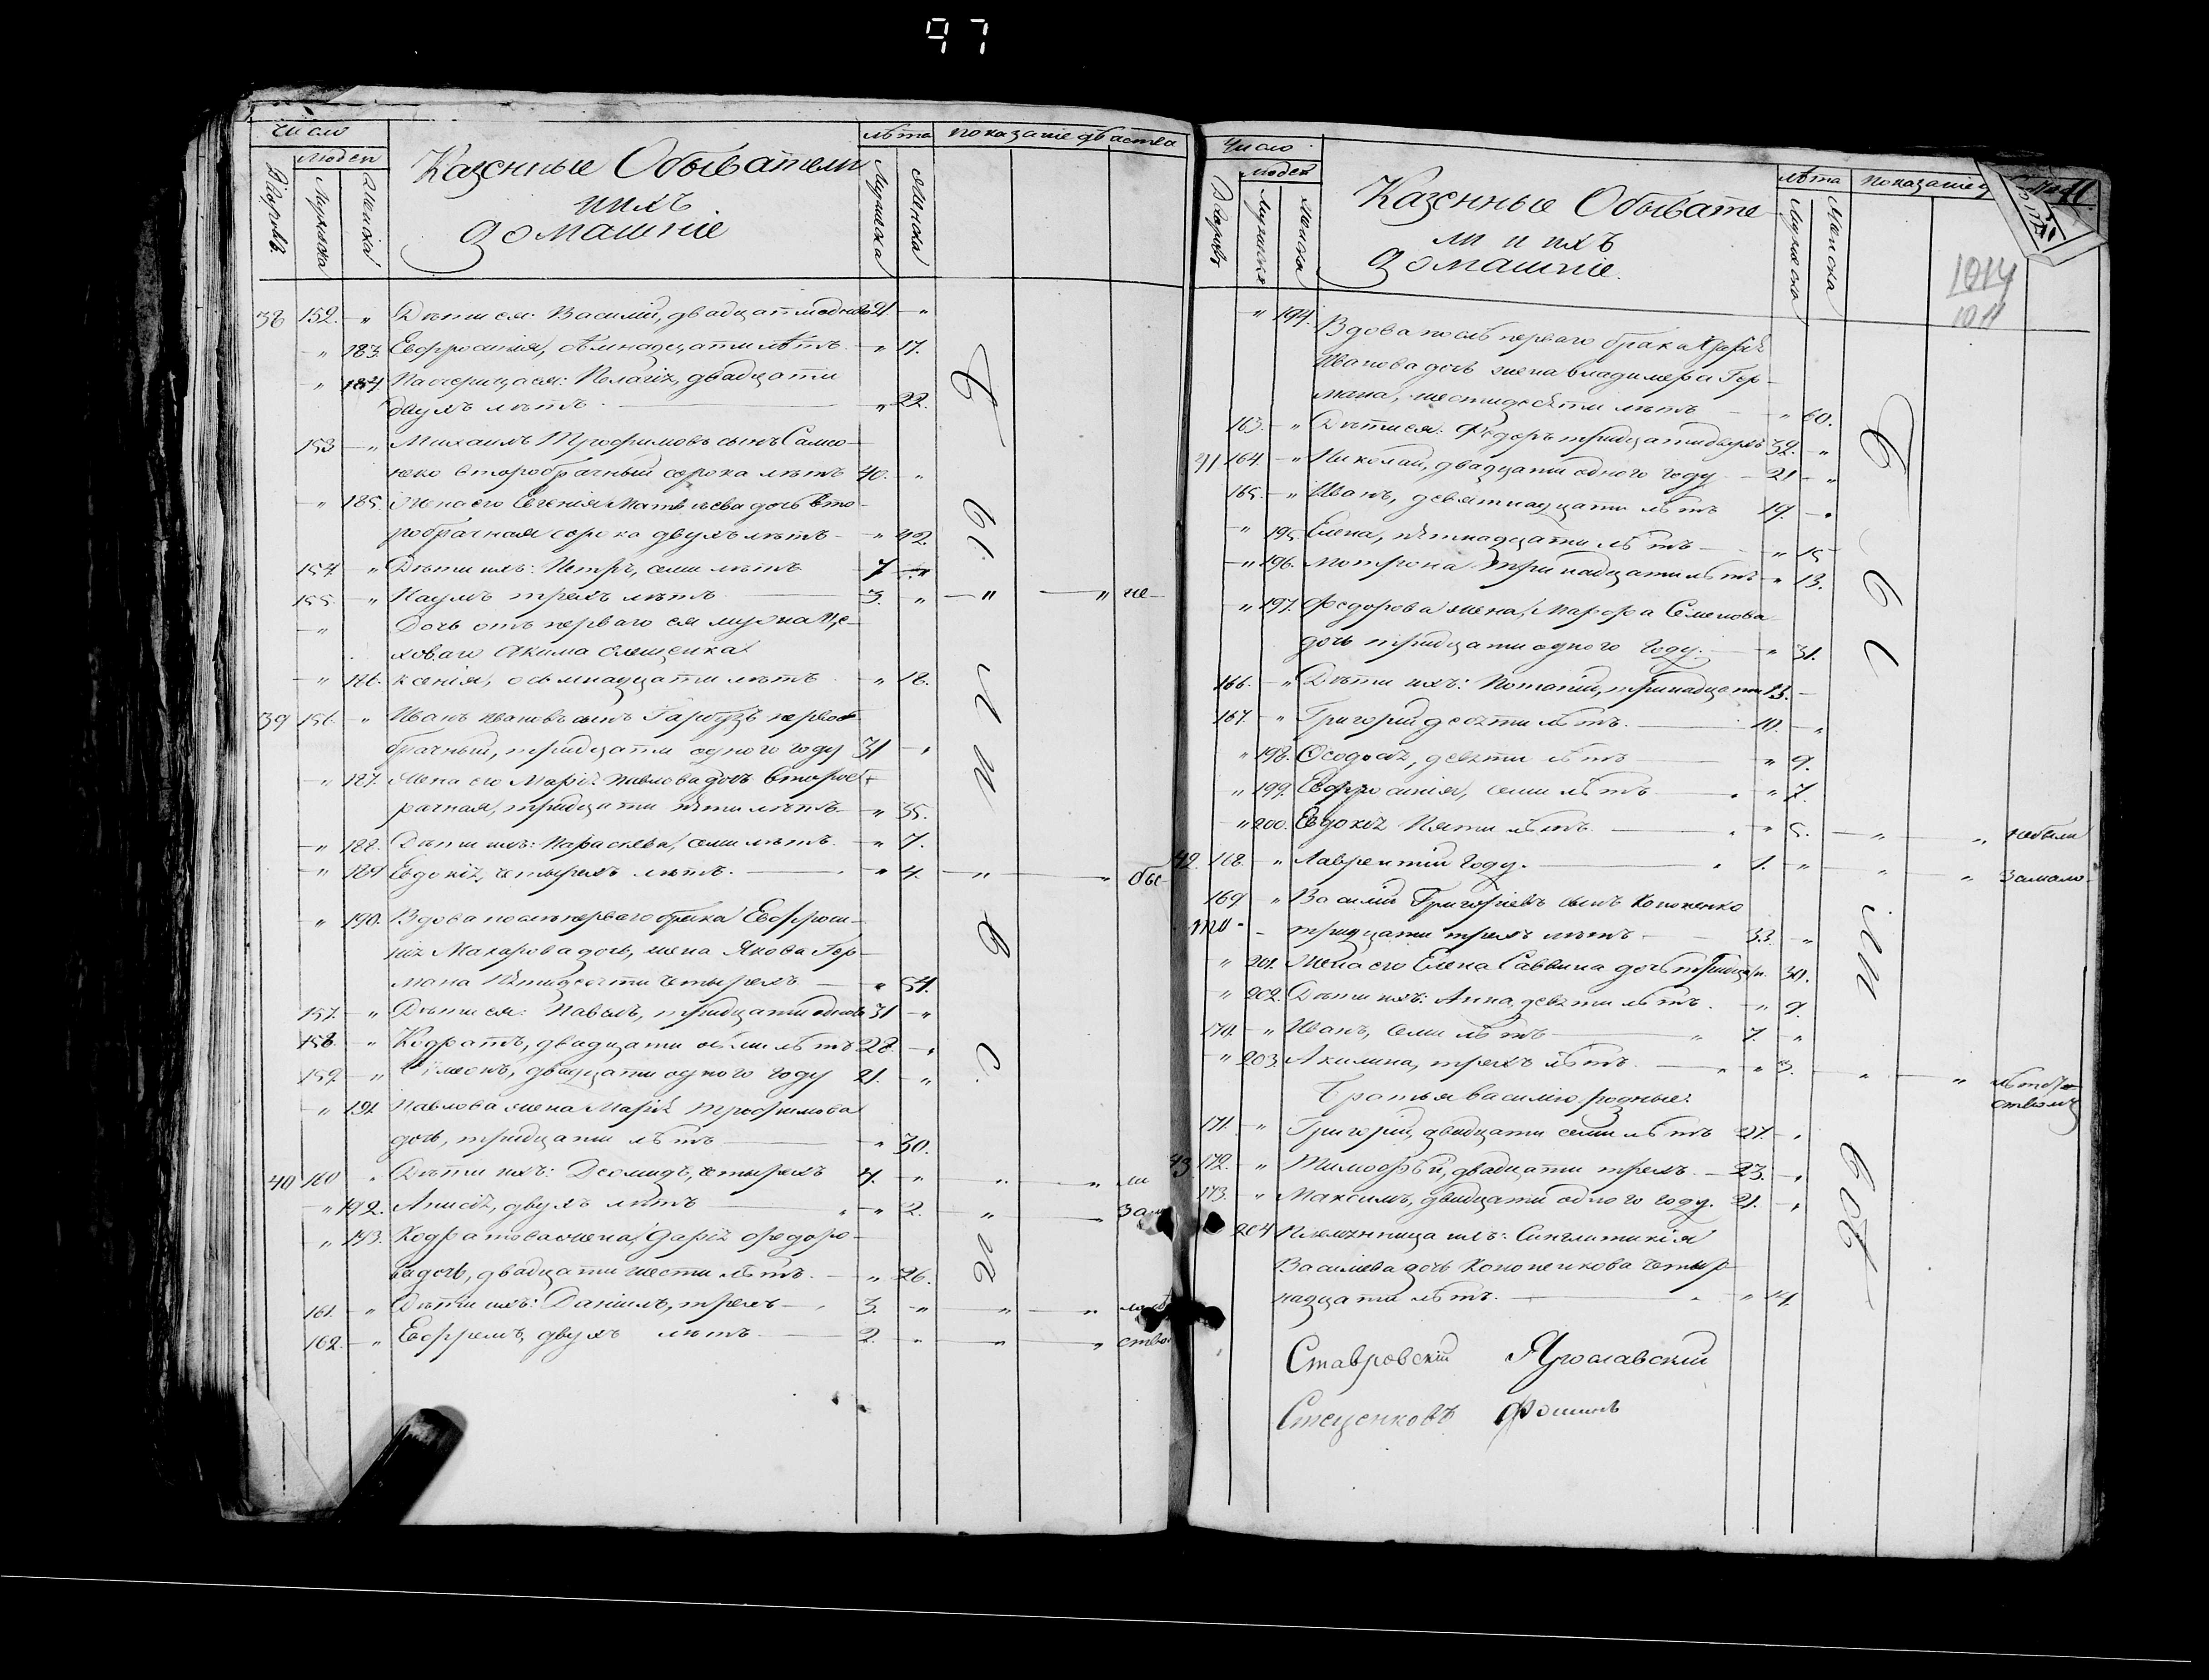 97
Число
людей
Дворовъ
Мужеска
Женска
Казенные Обыватели
ихъ
домашніе
лѣта
Мужеска
Женска
показаніе дѣйства
38 152. " Дѣти ея: Василій, двадцатиодного 21 "
" 183. Евфросинія, семнадцати лѣтъ " 17.
" 184. Падчерица ея: Пелагія, двадцати
двухъ лѣтъ " 22.
153 " Михаилъ Трофимовъ сынъ
второбрачный сорока лѣтъ 40. "
" 185. Жена его Евгенія Матвѣева дочь вто-
робрачная сорока двухъ лѣтъ " 42.
154. " Дѣти ихъ: Петръ, семи лѣтъ 7 "
155. " Наумъ трехъ лѣтъ 3. " " " не
" Дочь отъ перваго ея мужа
Акима
" 186. Ксенія, осьмнадцати лѣтъ " 18.
39 156. " Иванъ Ивановъ сынъ Гарбузъ перво-
брачный, тридцати одного году 31 "
" 187. Жена его Марія Павлова дочь второб-
рачная, тридцати пяти лѣтъ " 35.
" 188. Дѣти ихъ: Параскева, семи лѣтъ. " 7.
" 189 Евдокія, четырехъ лѣтъ. " 4. " " бы-
" 190. Вдова послѣ перваго брака Евфроси-
нія Макарова дочь, жена Якова Гер-
мана пятидесяти четырехъ " 54.
157. " Дѣти ея: Павелъ, тридцати одного 31 "
158. " Кодратъ, двадцати осьми лѣтъ 28. "
159. " Симеонъ, двадцати одного году 21. "
" 191. Павлова жена Марія Трофимова
дочь, тридцати лѣтъ " 30.
40 160 " Дѣти ихъ: Деомидъ, четырехъ 4. " " " ли
" 192. Анисія, двухъ лѣтъ " 2. " " за
" 193. Кодратова жена, Дарія Федоро-
ва дочь, двадцати шести лѣтъ. " 26.
161. " Дѣти ихъ: Даніилъ, трехъ 3. " " "
162. " Ефремъ, двухъ лѣтъ 2. " " "
Число
людей
Дворовъ
Мужеска
Женска
Казенные Обывате
ли и ихъ
домашніе.
лѣта
Мужеска
Женска
показаніе
1014
1011
" 194. Вдова послѣ перваго брака
Иванова дочь жена Владимера Гер-
мана, шестидесяти лѣтъ " 60.
163. " Дѣти ея: Федоръ тридцати двухъ 32. "
41 164. " Николай, двадцати одного году 21 "
165. " Иванъ, девятнадцати лѣтъ 19. "
" 195. Елена, пятнадцати лѣтъ " 15
" 196. Мотрона тринадцати лѣтъ " 13.
" 197. Федорова жена, Марфа Семенова
дочь тридцати одного году. " 31.
166. " Дѣти ихъ: Потапій, тринадцати 13.
167. " Григорій десяти лѣтъ. 10. "
" 198. Феодосія, девяти лѣтъ " 9.
" 199. Евфросинія, семи лѣтъ " 7.
" 200. Евдокія пяти лѣтъ. " 5. " " небыли
42 168. " Лаврентій году. 1. " " " замало
169 " Василій Григорьевъ сынъ Кононенко
тридцати трехъ лѣтъ 33. "
" 201. Жена его Елена Саввина дочь тридцати. 30.
" 202. Дѣти ихъ: Анна, девяти лѣтъ. " 9.
170. " Иванъ, семи лѣтъ 7. "
" 203. Акилина, трехъ лѣтъ. " 3. " " лѣт
ствомъ
Братья Василію родные:
171. " Григорій, двадцати семи лѣтъ 27. "
43 172. " Тимофѣй, двадцати трехъ. 23. "
173. " Максимъ, двадцати одного году. 21. "
204 Племянница ихъ: Синглитикія
Василіева дочь Кононенкова четыр
надцати лѣтъ. " 14.
Ставровскій Ярославскій
Стеценковъ Фоминъ